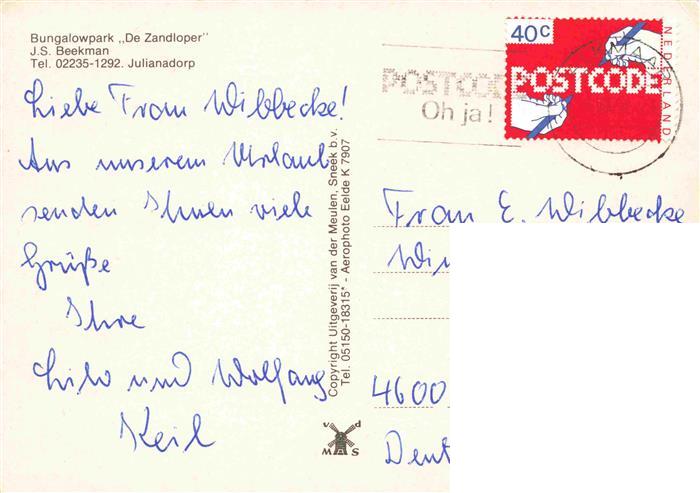 Bungalowpark „De Zandloper"
J.S. Beekman
Tel. 02235-1292. Julianadorp
Liebe Frau Wibbecke!
Aus unserem Urlaub
senden Ihnen viele
Grüße
Ihre
Lilo und Wolfgang
Keil
Copyright Uitgeverij van der Meulen, Sneek b.v.
Tel. 05150-18315* - Aerophoto Eelde K 7907
v d
M A S
POSTCODE
Oh ja!
40c
POSTCODE
NEDERLAND
Frau E. Wibbecke
4600